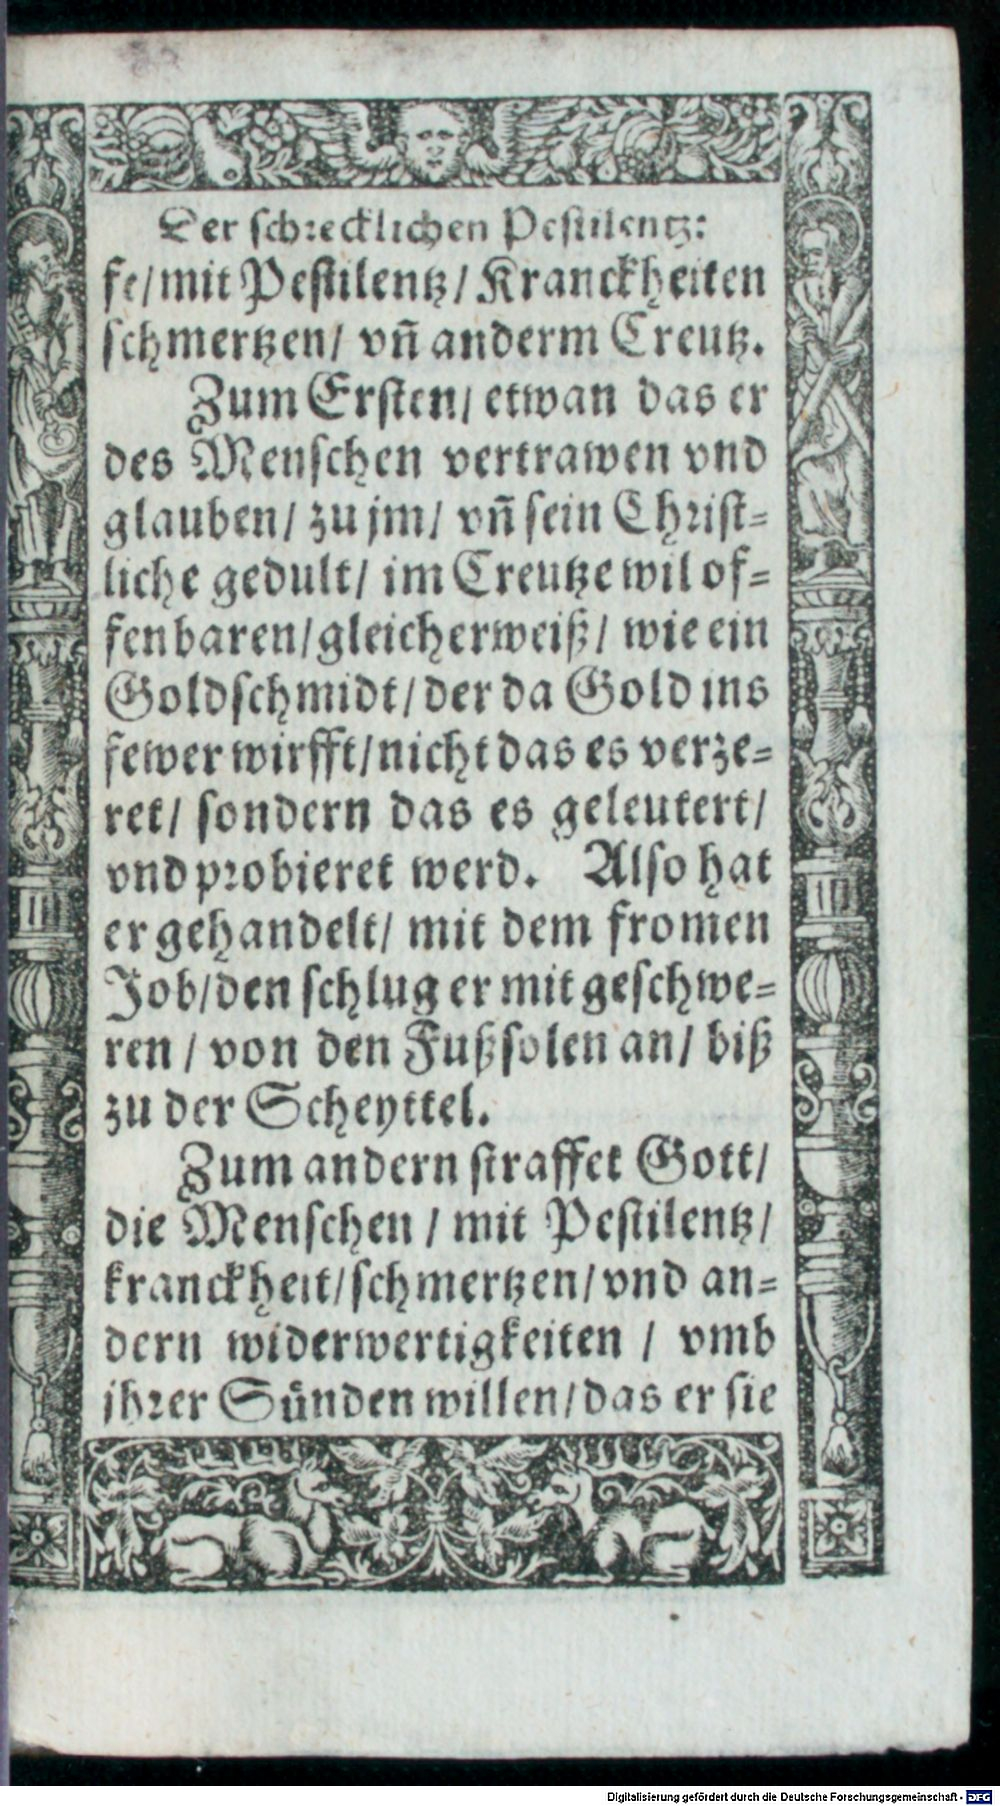 Der schrecklichen Pestilentz:
fe/ mit Pestilentz/ Kranckheiten
schmertzen/ vn̄ anderm Creutz.
Zum Ersten/ etwan das er
des Menschen vertrawen vnd
glauben/ zu jm/ vn̄ sein Christ=
liche gedult/ im Creutze wil of=
fenbaren/ gleicherweiß/ wie ein
Goldschmidt/ der da Gold ins
fewer wirfft/ nicht das es verze=
ret/ sondern das es geleutert/
vnd probieret werd. Also hat
er gehandelt/ mit dem fromen
Job/ den schlug er mit geschwe=
ren/ von den Fußsolen an/ biß
zu der Scheyttel.
Zum andern straffet Gott/
die Menschen/ mit Pestilentz/
kranckheit/ schmertzen/ vnd an=
dern widerwertigkeiten/ vmb
jhrer Sünden willen/ das er sie
Digitalisierung gefördert durch die Deutsche Forschungsgemeinschaft - DFG